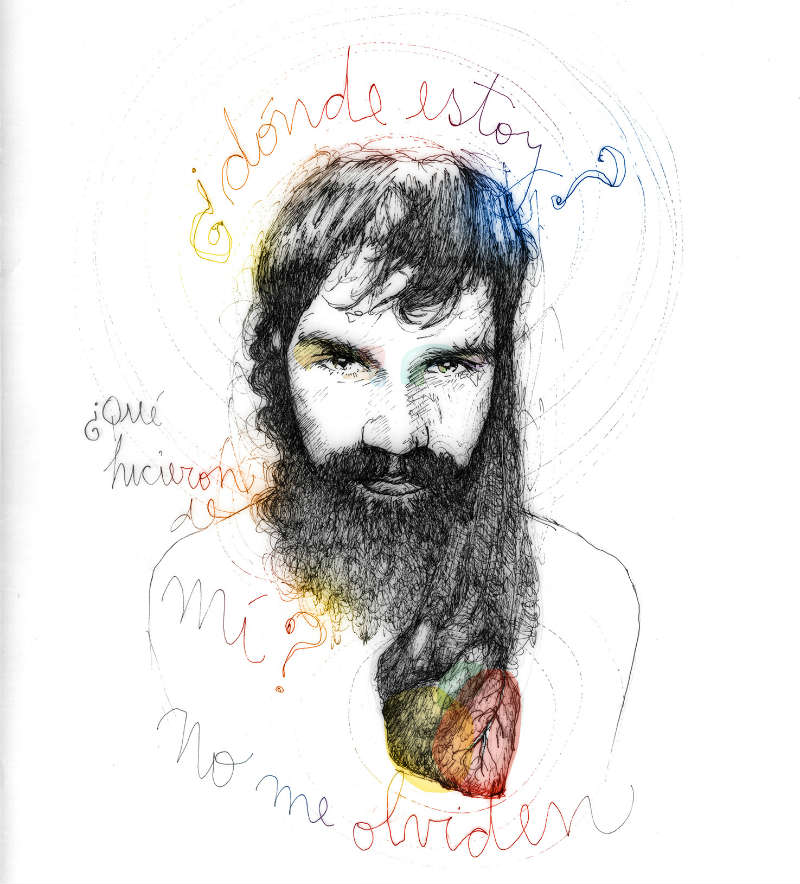 ¿dónde estoy?
¿Qué
hicieron
de
Mí?
No me olviden